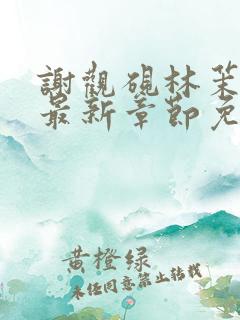 謝觀硯林
最新章節免
黄橙绿
未经同意禁止转载